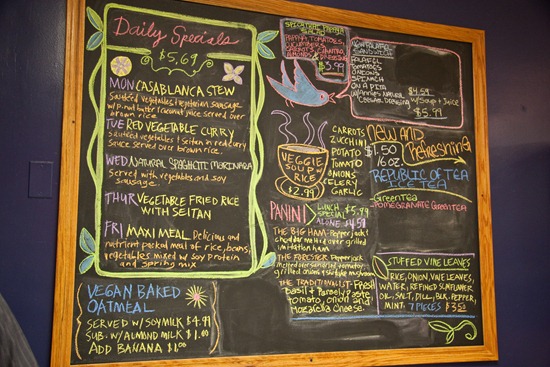 Daily Specials
$5.69
MON CASABLANCA STEW
Sauteed vegetables & vegetarian sausage
w/ p.nut butter & coconut juice served over
brown rice.
TUE RED VEGETABLE CURRY
Sauteed vegetables & seitan in red curry
sauce served over brown rice.
WED NATURAL SPAGHETTI MARINARA
Served with vegetables and soy
sausage.
THUR VEGETABLE FRIED RICE
WITH SEITAN
FRI MAXI MEAL Delicious and
nutrient packed meal of rice, beans,
vegetables mixed w/ soy protein
and spring mix
VEGAN BAKED
OATMEAL
SERVED W/ SOYMILK $4.99
SUB. W/ ALMOND MILK $1.00
ADD BANANA $1.00
SALAD
TOMATOES,
CUCUMBERS,
CARROTS,
DRESSING
$3.99
SANDWICH
FALAFEL
TOMATOES
ONIONS
SPINACH
ON A PITA
$4.59
w/ Soup + Juice
$5.99
VEGGIE
SOUP W/
RICE
$2.99
CARROTS
ZUCCHINI
POTATO
TOMATO
ONIONS
CELERY
GARLIC
NEW AND
Refreshing
$1.50
16 oz.
REPUBLIC OF TEA
ICE TEA
GREEN TEA
POMEGRANATE GREEN TEA
PANINI
LUNCH SPECIAL $5.99
ALONE $4.59
THE BIG HAM - Pepperjack &
cheddar melted over grilled
vegetarian ham
THE FORESTER - Pepperjack
melted over sundried tomato,
grilled onions & shiitake mushroom
THE TRADITIONALIST - Fresh
basil & Parsley paste
tomato, onion and
Mozarella cheese.
STUFFED VINE LEAVES
RICE, ONION, VINE LEAVES,
WATER, REFINED SUNFLOWER
OIL, SALT, DILL, BLK. PEPPER,
MINT. 7 PIECES